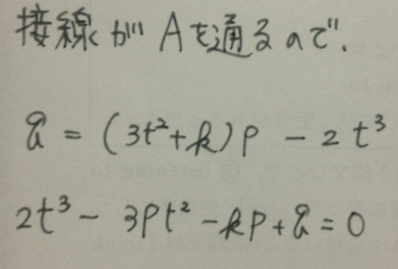 接線が Aを通るので、
q = (3t²+k)p - 2t³
2t³ - 3pt² - kp + q = 0